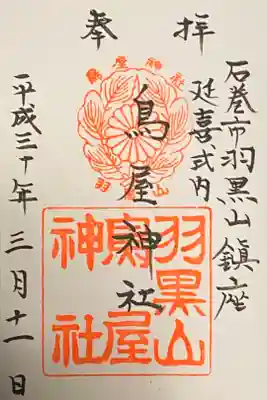 奉拝
石巻市羽黒山鎮座
延喜式内
鳥屋神社
平成三十年三月十一日
鳥屋神社
羽黒山
鳥屋
神社